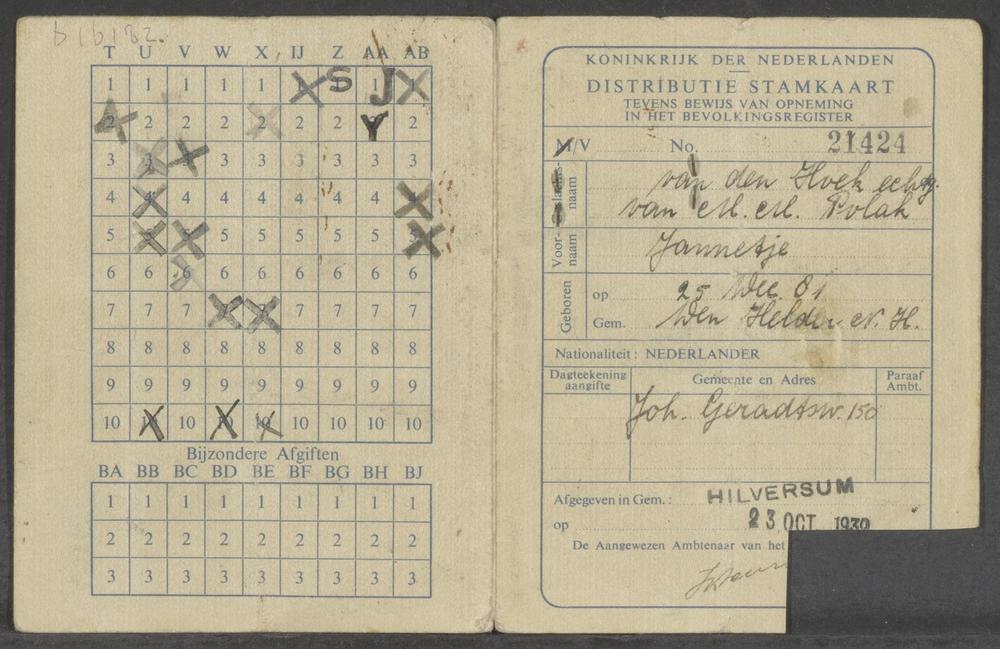 b1b182.
T U V W X IJ Z AA AB
1 1 1 1 1 1 S J 1
2 2 2 2 2 2 2 Y 2
3 3 3 3 3 3 3 3 3
4 4 4 4 4 4 4 4 4
5 5 5 5 5 5 5 5 5
6 6 6 6 6 6 6 6 6
7 7 7 7 7 7 7 7 7
8 8 8 8 8 8 8 8 8
9 9 9 9 9 9 9 9 9
10 10 10 10 10 10 10 10 10
Bijzondere Afgiften
BA BB BC BD BE BF BG BH BJ
1 1 1 1 1 1 1 1 1
2 2 2 2 2 2 2 2 2
3 3 3 3 3 3 3 3 3
KONINKRIJK DER NEDERLANDEN
DISTRIBUTIE STAMKAART
TEVENS BEWIJS VAN OPNEMING
IN HET BEVOLKINGSREGISTER
M/V No. 21424
naam
van den Hoek echtg.
van M. M. Polak
Voor-
naam
Jannetje
Geboren
op 25 Dec. 81
Gem. Den Helder N. H.
Nationaliteit : NEDERLANDER
Dagteekening
aangifte
Gemeente en Adres
Paraaf
Ambt.
Joh. Geradtsw. 150
Afgegeven in Gem. : HILVERSUM
op 23 OCT 1939
De Aangewezen Ambtenaar van het